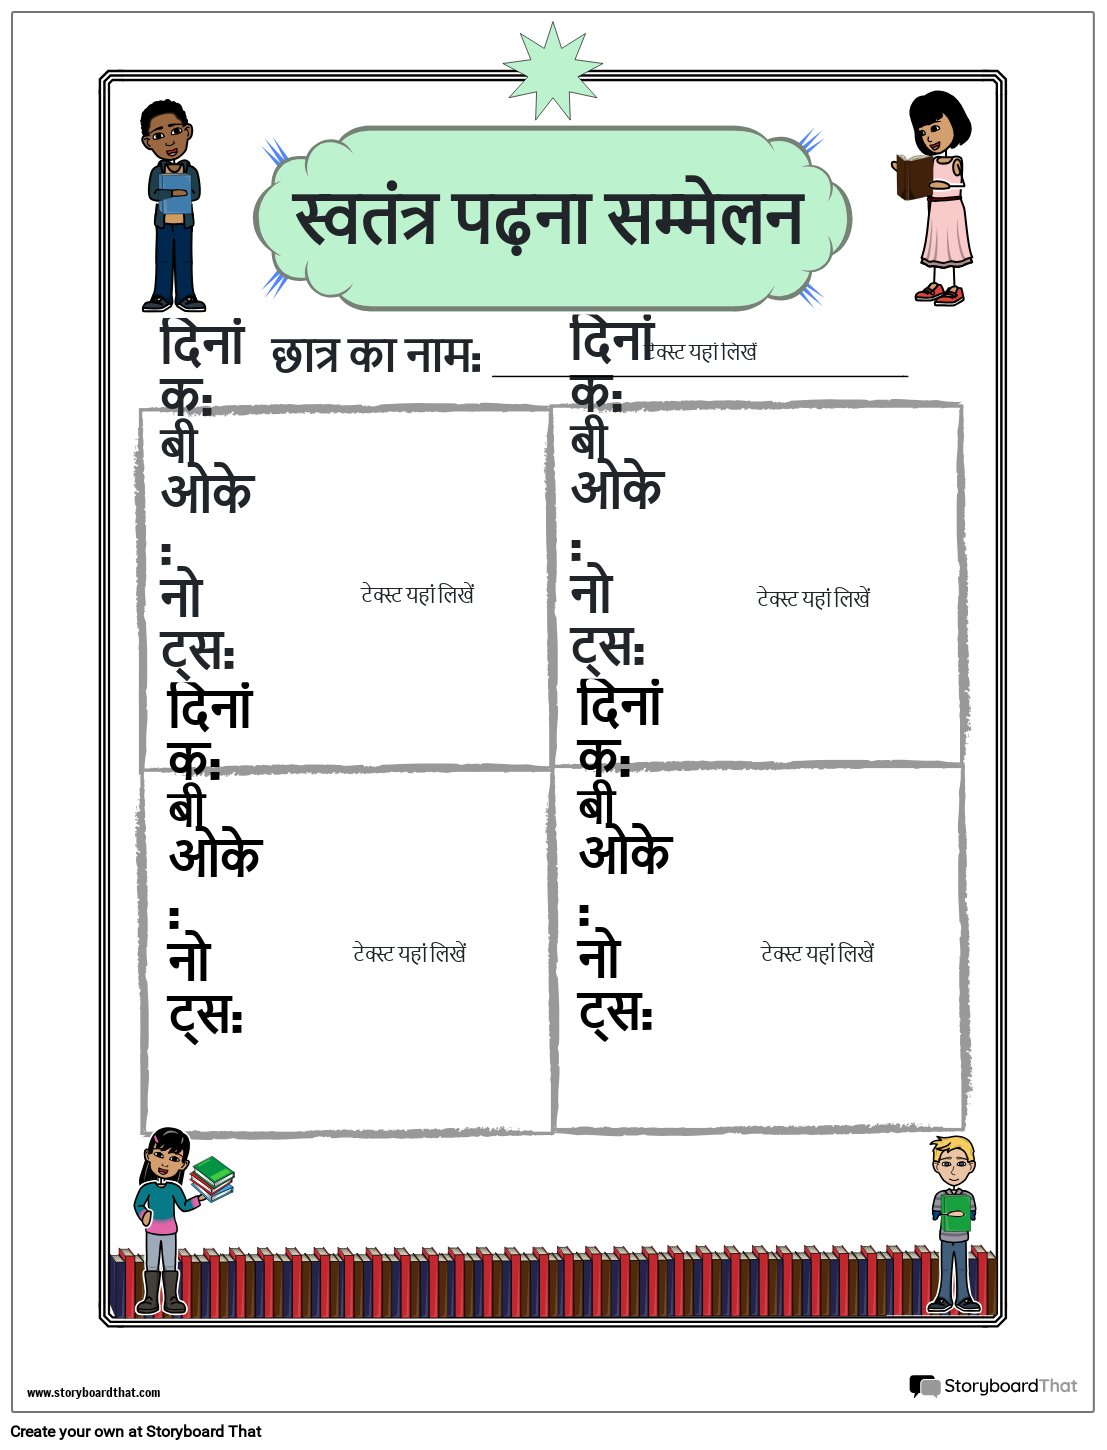 स्वतंत्र पढ़ना सम्मेलन
छात्र का नाम:
टेक्स्ट यहां लिखें
दिनां
क:
बी
ओके
:
नो
ट्स:
टेक्स्ट यहां लिखें
दिनां
क:
बी
ओके
:
नो
ट्स:
टेक्स्ट यहां लिखें
दिनां
क:
बी
ओके
:
नो
ट्स:
टेक्स्ट यहां लिखें
दिनां
क:
बी
ओके
:
नो
ट्स:
टेक्स्ट यहां लिखें
www.storyboardthat.com
StoryboardThat
Create your own at Storyboard That